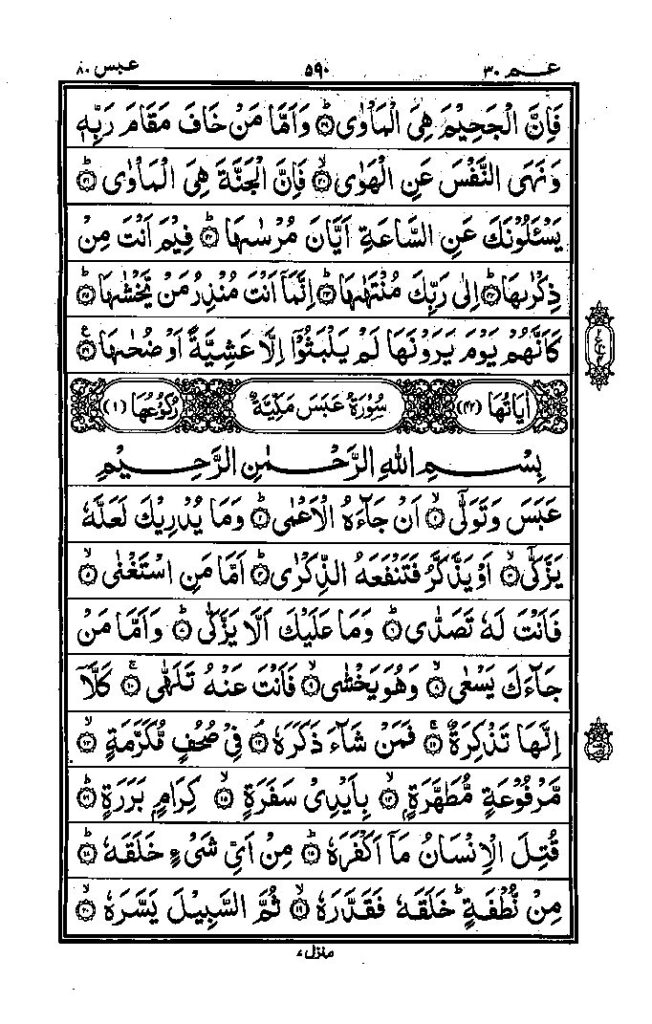 عبس ٨٠ ٥٩٠ عـم ٣٠
فَاِنَّ الْجَحِيْمَ هِىَ الْمَاْوٰى ﴿٣٩﴾ؕ وَاَمَّا مَنْ خَافَ مَقَامَ رَبِّهٖ
وَنَهَى النَّفْسَ عَنِ الْهَوٰى ﴿٤٠﴾ۙ فَاِنَّ الْجَنَّةَ هِىَ الْمَاْوٰى ﴿٤١﴾ؕ
يَسْـَٔلُوْنَكَ عَنِ السَّاعَةِ اَيَّانَ مُرْسٰىهَا ﴿٤٢﴾ؕ فِيْمَ اَنْتَ مِنْ
ذِكْرٰىهَا ﴿٤٣﴾ؕ اِلٰى رَبِّكَ مُنْتَهٰىهَا ﴿٤٤﴾ؕ اِنَّمَاۤ اَنْتَ مُنْذِرُ مَنْ يَّخْشٰىهَا ﴿٤٥﴾ؕ
كَاَنَّهُمْ يَوْمَ يَرَوْنَهَا لَمْ يَلْبَثُوْۤا اِلَّا عَشِيَّةً اَوْ ضُحٰىهَا ﴿٤٦﴾
اٰيَاتُهَا (٤٢) سُوْرَةُ عَبَسَ مَكِّيَّةٌ رُكُوْعُهَا (١)
بِسْمِ اللهِ الرَّحْمٰنِ الرَّحِيْمِ
عَبَسَ وَتَوَلّٰىۤ ﴿١﴾ۙ اَنْ جَآءَهُ الْاَعْمٰى ﴿٢﴾ؕ وَمَا يُدْرِيْكَ لَعَلَّهٗ
يَزَّكّٰىۤ ﴿٣﴾ۙ اَوْ يَذَّكَّرُ فَتَنْفَعَهُ الذِّكْرٰى ﴿٤﴾ؕ اَمَّا مَنِ اسْتَغْنٰى ﴿٥﴾ۙ
فَاَنْتَ لَهٗ تَصَدّٰى ﴿٦﴾ؕ وَمَا عَلَيْكَ اَلَّا يَزَّكّٰى ﴿٧﴾ؕ وَاَمَّا مَنْ
جَآءَكَ يَسْعٰى ﴿٨﴾ۙ وَهُوَ يَخْشٰى ﴿٩﴾ۙ فَاَنْتَ عَنْهُ تَلَهّٰى ﴿١٠﴾ۚ كَلَّاۤ
اِنَّهَا تَذْكِرَةٌ ﴿١١﴾ۚ فَمَنْ شَآءَ ذَكَرَهٗ ﴿١٢﴾ۘ فِىْ صُحُفٍ مُّكَرَّمَةٍ ﴿١٣﴾ۙ
مَّرْفُوْعَةٍ مُّطَهَّرَةٍۭ ﴿١٤﴾ۙ بِاَيْدِىْ سَفَرَةٍ ﴿١٥﴾ۙ كِرَامٍۭ بَرَرَةٍ ﴿١٦﴾ؕ
قُتِلَ الْاِنْسَانُ مَاۤ اَكْفَرَهٗ ﴿١٧﴾ؕ مِنْ اَىِّ شَىْءٍ خَلَقَهٗ ﴿١٨﴾ؕ
مِنْ نُّطْفَةٍؕ خَلَقَهٗ فَقَدَّرَهٗ ﴿١٩﴾ۙ ثُمَّ السَّبِيْلَ يَسَّرَهٗ ﴿٢٠﴾ۙ
منزل ٧